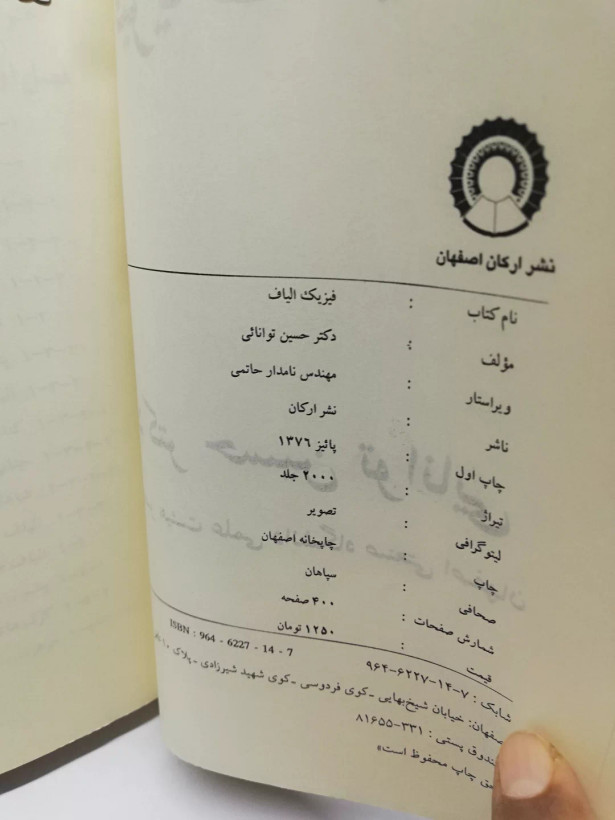 نشر ارکان اصفهان
نام کتاب : فیزیک الیاف
مؤلف : دکتر حسین توانائی
ویراستار : مهندس نامدار حاتمی
ناشر : نشر ارکان
چاپ اول : پائیز ۱۳۷۶
تیراژ : ۲۰۰۰ جلد
لیتوگرافی : تصویر
چاپ : چاپخانه اصفهان
صحافی : سپاهان
شمارش صفحات : ۴۰۰ صفحه
قیمت : ۱۲۵۰ تومان
شابک : ۷-۱۴-۶۲۲۷-۹۶۴ ISBN : 964 - 6227 - 14 - 7
اصفهان: خیابان شیخ‌بهایی - کوی فردوسی - کوی شهید شیرزادی - پلاک
صندوق پستی : ۳۳۱-۸۱۶۵۵
حق چاپ محفوظ است»